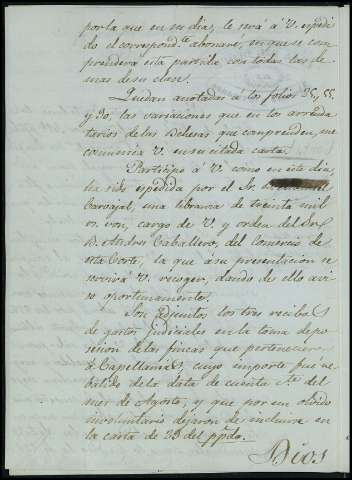 por la que en su dia, le será á V. espedi
do el correspond.te abonaré, en que se com
prendera esta partida con todas las de
mas de su clase.
Quedan anotadas á los folios 35, 55,
y 30, las variaciones que en los arrenda
tarios de las Dehesas que conprenden, me
comunica V. en su citada carta.
Participo á V. como en este dia,
ha sido espedida por el Sr.
Carvajal, una libranza de treinta mil
rs. von, cargo de V. y orden del Sr.
D. Andres Caballero, del Comercio de
esta Corte, la que á su presentacion se
servirá V. recoger, dando de ello avi
so oportunamente.
Son adjuntos los tres recibos
de gastos judiciales en la toma de po
sesion de las fincas que pertenecieron
á Capellanias, cuyo importe fué re
batido de la data de cuenta del
mes de Agosto, y que por un olvido
involuntario dejaron de incluirse en
la carta de 23 del pp.do
Dios